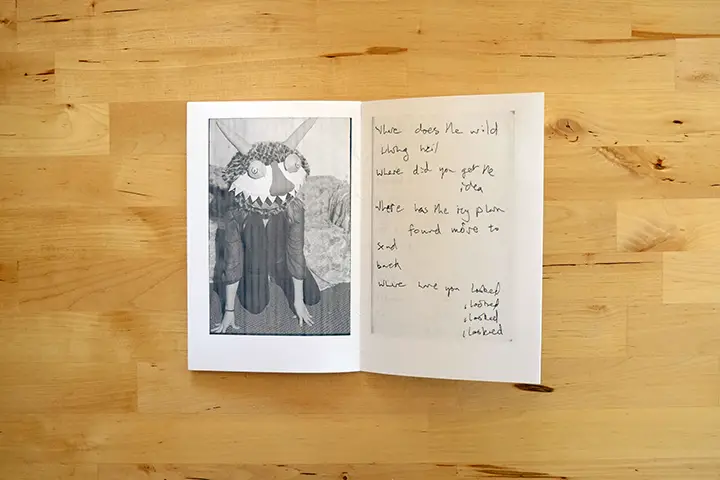 where does the wild
thing
where did you get the
idea
where has the icy plain
found more to
send
back
where have you looked
, looked
, looked
, looked